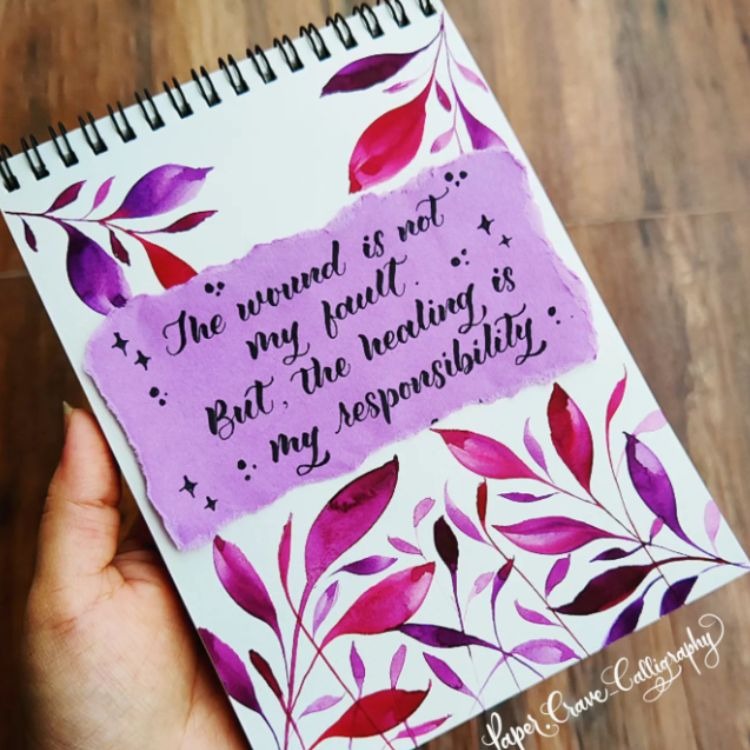 The wound is not
my fault.
But, the healing is
my responsibility
Paper.Crave_Calligraphy